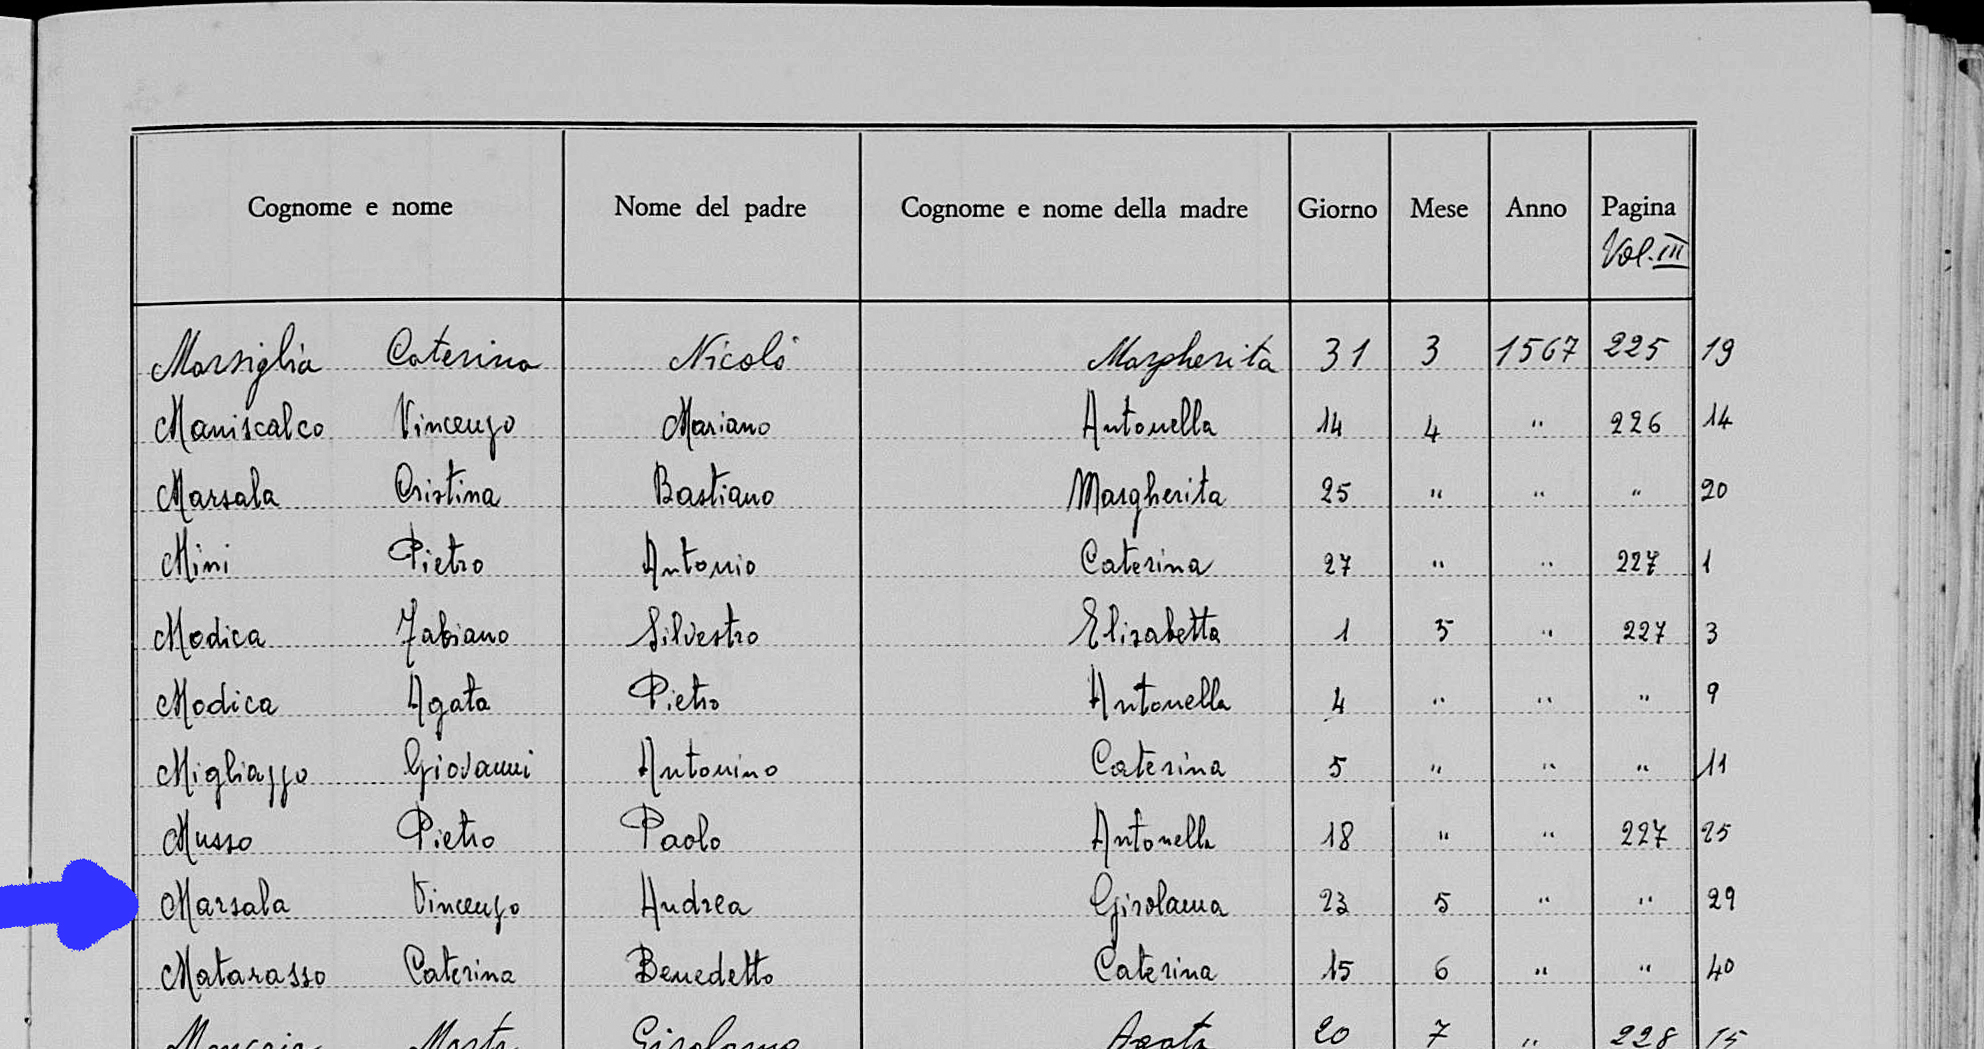 Cognome e nome Nome del padre Cognome e nome della madre Giorno Mese Anno Pagina
Vol. III
Marsiglia Caterina Nicolò Margherita 31 3 1567 225 19
Maniscalco Vincenzo Mariano Antonella 14 4 " 226 14
Marsala Cristina Bastiano Margherita 25 " " " 20
Mini Pietro Antonio Caterina 27 " " 227 1
Modica Fabiano Silvestro Elisabetta 1 5 " 227 3
Modica Agata Pietro Antonella 4 " " " 9
Migliazzo Giovanni Antonino Caterina 5 " " " 11
Musso Pietro Paolo Antonella 18 " " 227 25
Marsala Vincenzo Andrea Girolama 23 5 " " 29
Matarasso Caterina Benedetto Caterina 15 6 " " 40
Girolamo Agata 20 7 " 228 15